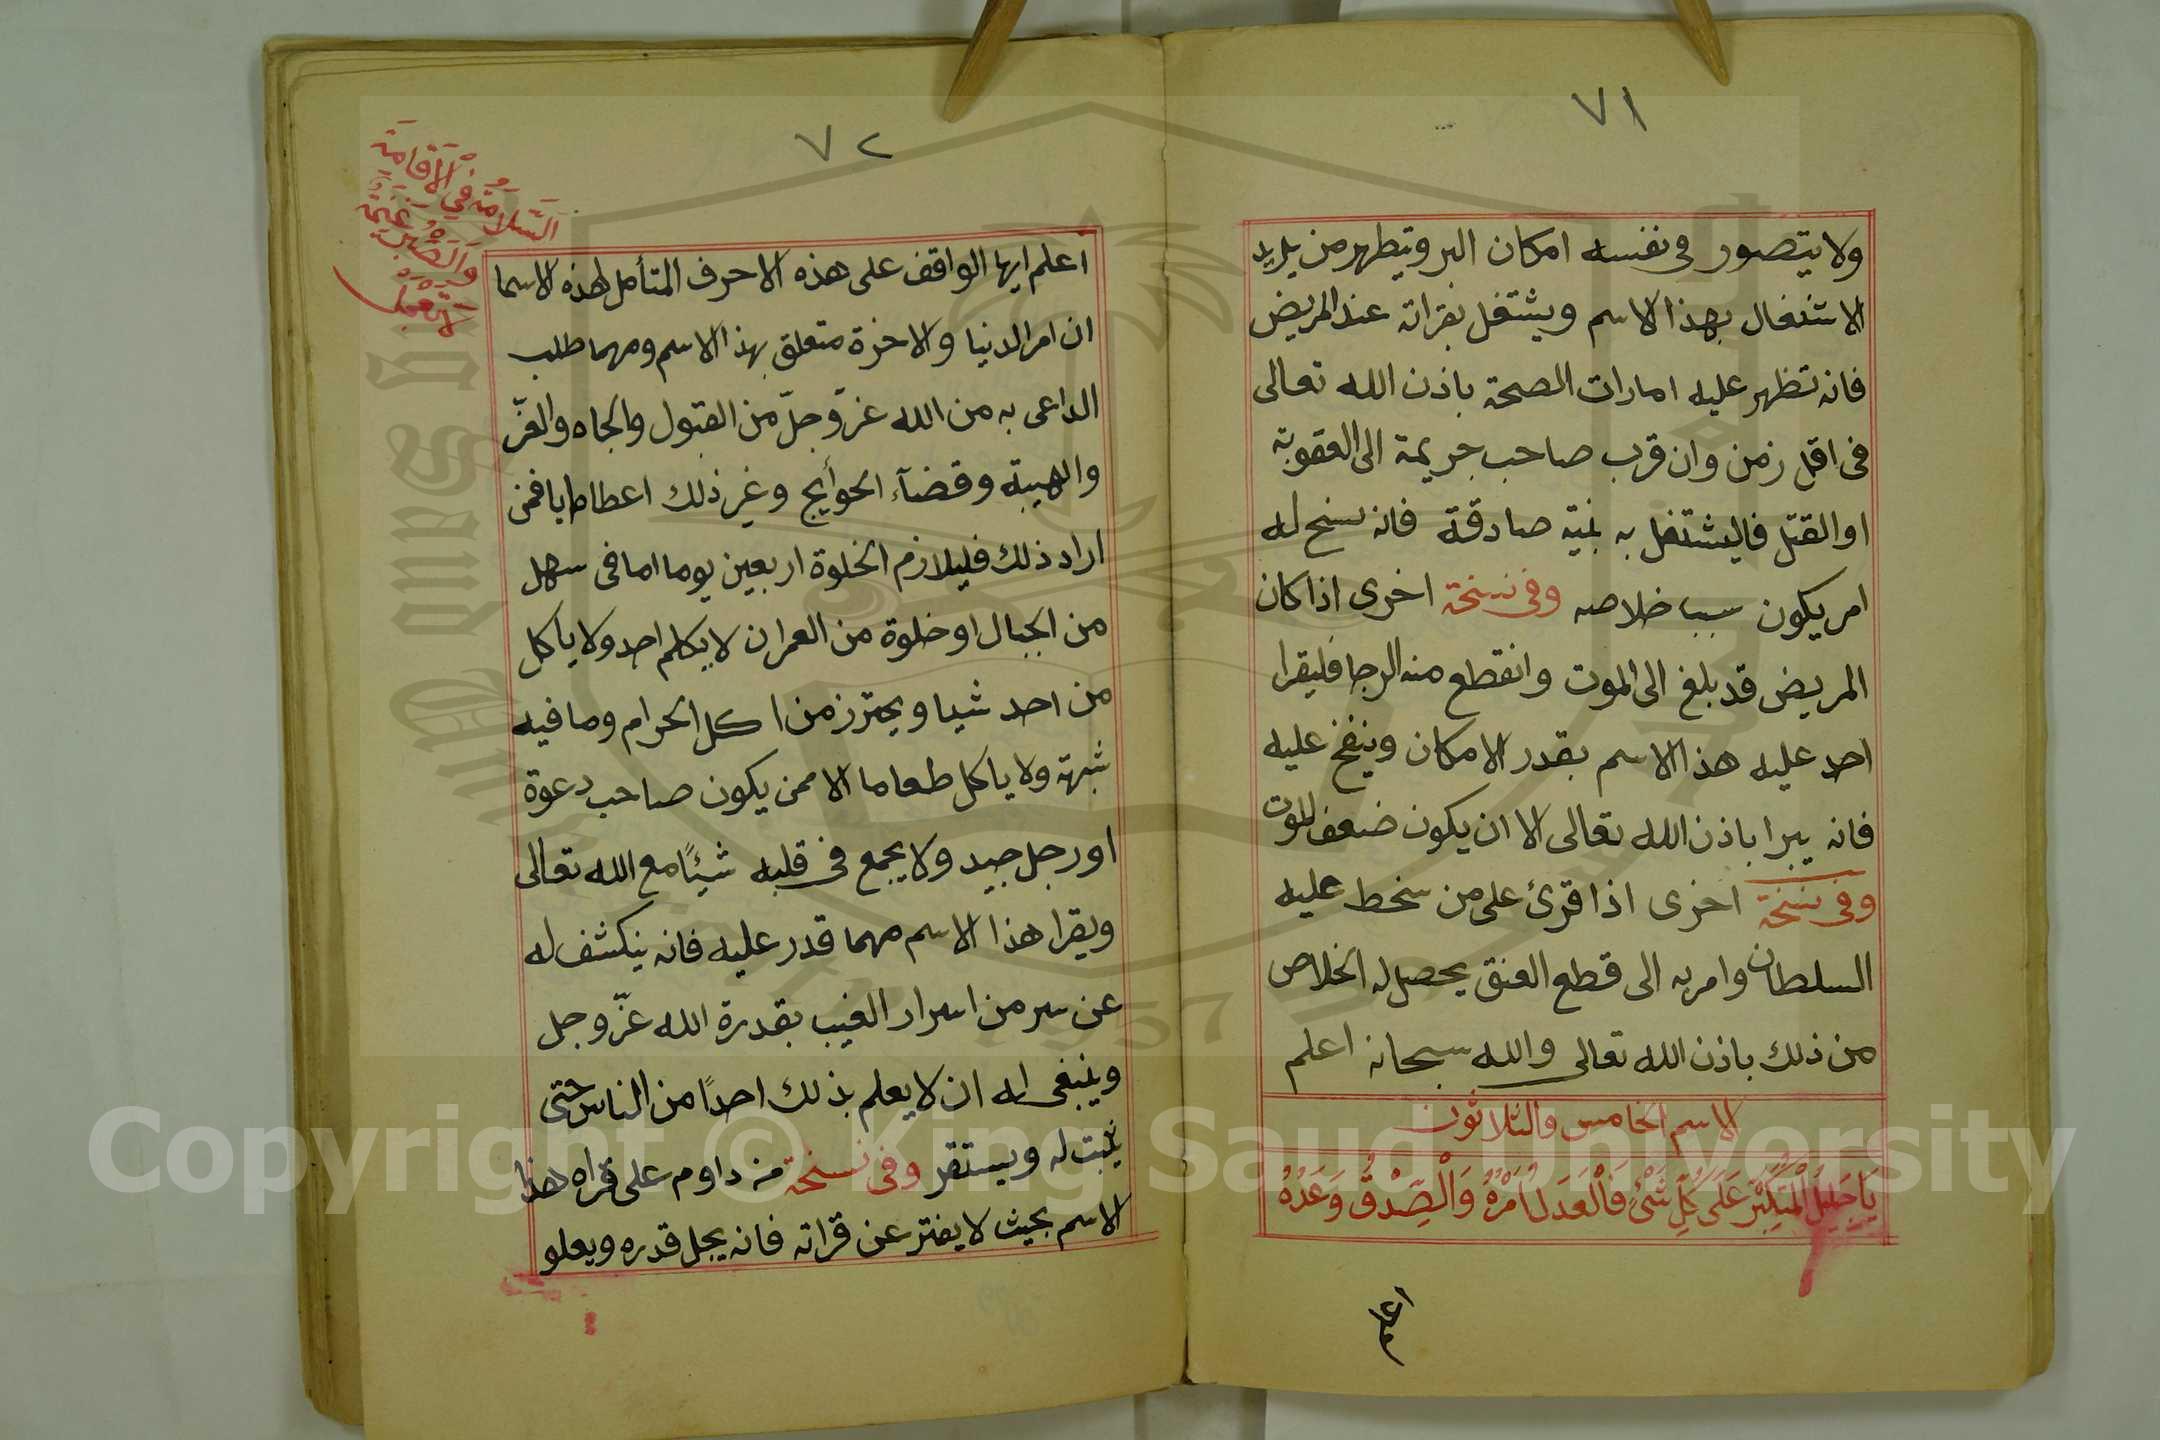 ٧١
ولا يتصور فى نفسه امكان البر ويتطهر من يريد
الاشتغال بهذا الاسم ويشتغل بقراته عند المريض
فانه تظهر عليه امارات الصحة باذن الله تعالى
فى اقل زمن وان قرب صاحب جريمة الى العقوبة
او القتل فاليشتغل به بنية صادقة فانه نسنح له
امر يكون سببا خلاصه وفى نسخة اخرى اذا كان
المريض قد بلغ الى الموت وانقطع منه الرجا فليقرا
احد عليه هذا الاسم بقدر الامكان وينفخ عليه
فانه يبرا باذن الله تعالى الا ان يكون ضعف للموت
وفى نسخة اخرى اذا قرئ على من سخط عليه
السلطان وامر به الى قطع العنق يحصل له الخلاص
من ذلك باذن الله تعالى والله سبحانه اعلم
الاسم الخامس والثلاثون
يَا جَلِيلُ الْمُتَكَبِّرُ عَلَى كُلِّ شَىْءٍ فَالْعَدلُ اَمْرُهُ وَالْصِّدْقُ وَعَدُهُ
اعلم
٧٢
السَّلَامَةُ فِي الْاَقَامَة
وَالصَّبْرُ غَنِيمَةٌ
لاتعجل
اعلم ايها الواقف على هذه الاحرف المتأمل لهذه الاسما
ان امر الدنيا والاخرة متعلق بهذا الاسم ومهما طلب
الداعى به من الله عزّ وجلّ من القبول والجاه والعزّ
والهيبة وقضآء الحوأيج وغير ذلك اعطاه ايا فمن
اراد ذلك فليلازم الخلوة اربعين يوما اما فى سهل
من الجبال او خلوة من العمران لا يكلم احد ولا ياكل
من احد شيا ويحترز من اكل الحرام وما فيه
شبهة ولا ياكل طعاما الا ممن يكون صاحب دعوة
او رجل جيد ولا يجمع فى قلبه شيئًا مع الله تعالى
ويقرا هذا الاسم مهما قدر عليه فانه ينكشف له
عن سر من اسرار الغيب بقدرة الله عزّ وجل
وينبغى له ان لا يعلم بذلك احدًا من الناس حتى
يثبت له ويستقر وفى نسخة من داوم على قراه هذا
الاسم بحيث لا يفتر عن قراته فانه يجل قدره ويعلو
Copyright © King Saud University
1957